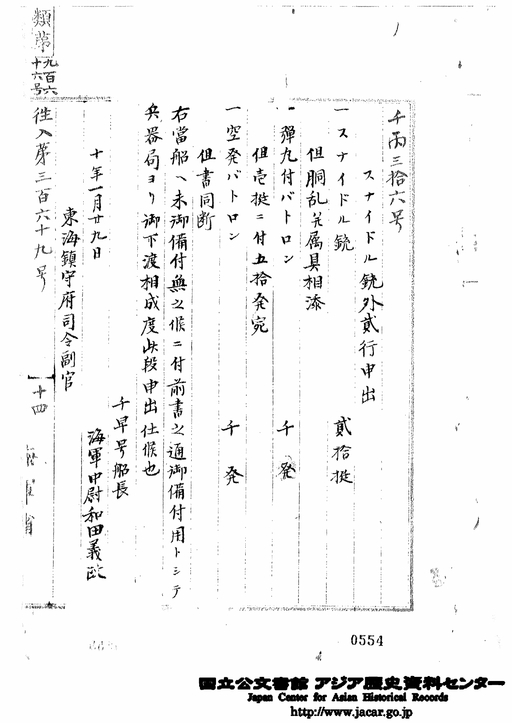 千丙三拾六号
スナイドル銃外貳行申出
一スナイドル銃 貳拾挺
但胴乱并属具相添
一弾丸付パトロン 千発
但壱挺ニ付五拾発宛
一空発パトロン 千発
但書同断
右當船ヘ未御備付無之候ニ付前書之通御備付用トシテ
兵器局ヨリ御下渡相成度此段申出仕候也
千早号船長
十年一月廿九日 海軍中尉和田義政
東海鎮守府司令副官
往入第三百六十九号
十四
類第九百六十六号
0554
国立公文書館 アジア歴史資料センター
Japan Center for Asian Historical Records
http://www.jacar.go.jp